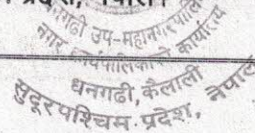 प्रदेश, नेपाल
धनगढी उप-महानगरपालिका
नगर कार्यपालिकाको कार्यालय
धनगढी, कैलाली
सुदूरपश्चिम प्रदेश, नेपाल